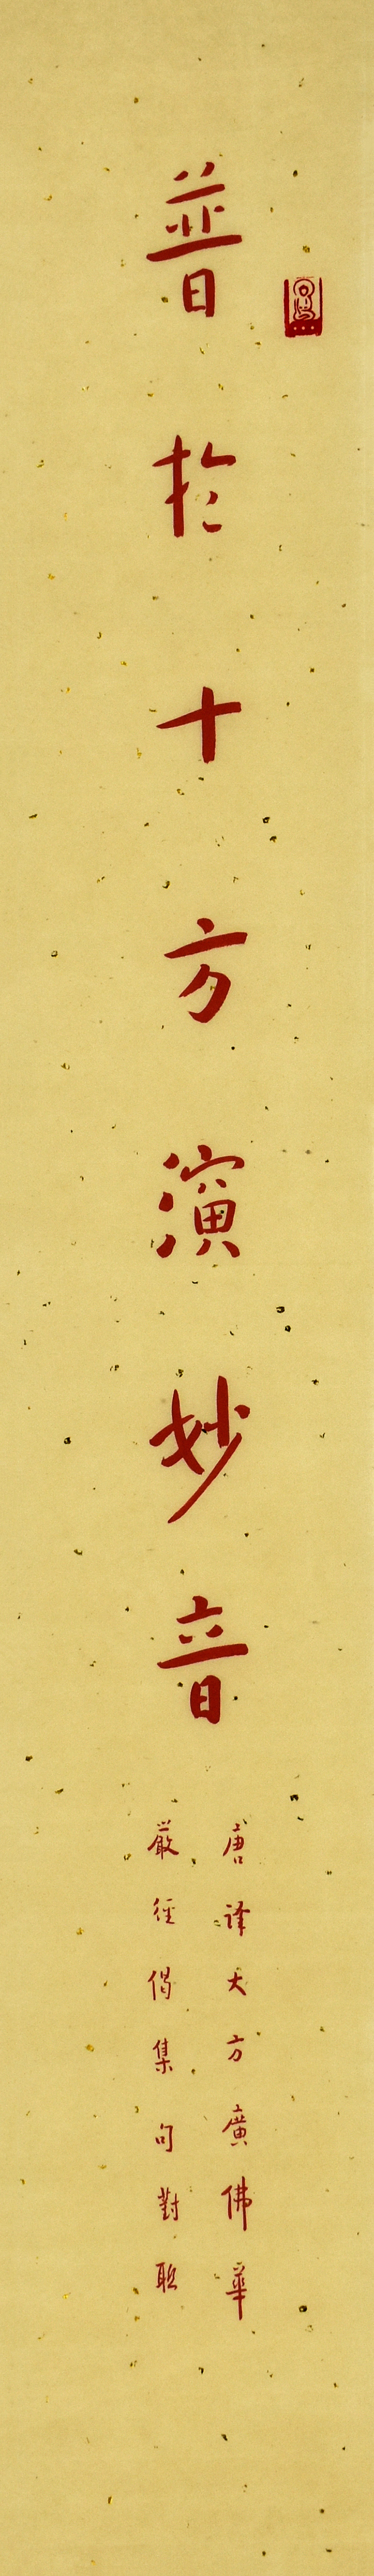 普於十方演妙音
唐譯大方廣佛華
嚴經偈集句對聯